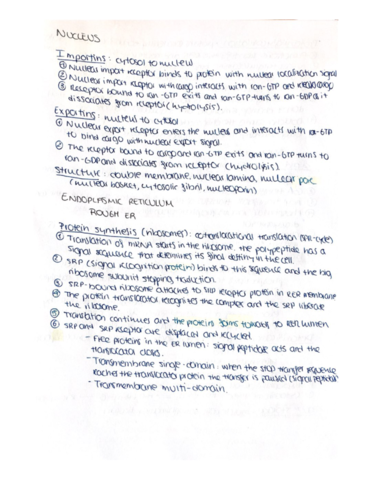 NUCLEUS
Importins: cytosol to nucleus
① Nuclear import receptor binds to protein with nuclear localisation signal
② Nuclear import receptor with cargo interacts with ran-GTP and releases cargo
③ Receptor bound to ran-GTP exits and ran-GTP turns to ran-GDP as it
dissociates from receptor (hydrolysis).
Exportins: nucleus to cytosol
① Nuclear export receptor enters the nucleus and interacts with ran-GTP
to bind cargo with nuclear export signal.
② The receptor bound to cargo and ran-GTP exits and ran-GTP turns to
ran-GDP and dissociates from receptor (hydrolysis).
Structure: double membrane, nuclear lamina, nuclear pore
(nuclear basket, cytosolic fibril, nucleoporin)
ENDOPLASMIC RETICULUM
ROUGH ER
Protein synthesis (ribosomes): cotranslational translation (SRP-cycle)
① Translation of mRNA starts in the ribosome. the polypeptide has a
signal sequence that determines its final destiny in the cell.
② SRP (signal recognition protein) binds to this sequence and the big
ribosome subunit stopping traduction.
③ SRP-bound ribosome attaches to SRP receptor protein in RER membrane
④ The protein translocator recognises the complex and the SRP liberate
the ribosome.
⑤ Translation continues and the proteins towards to RER lumen
⑥ SRP and SRP receptor are displaced and recycled.
- Free proteins in the ER lumen: signal peptidase acts and the
translocator closes.
- Transmembrane single-domain: when the stop transfer sequence
reaches the translocator protein the transfer is (signal peptidase)
- Transmembrane multi-domain.